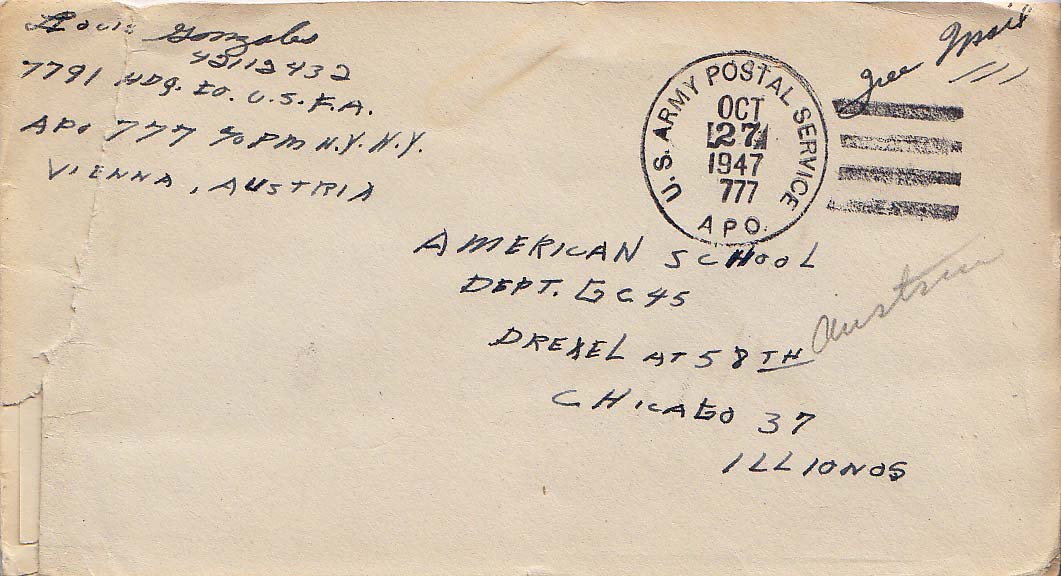 Louis Gonzales
42112432
7791 HDQ. CO. U.S.F.A.
APO 777 c/o PM N.Y. N.Y.
VIENNA, AUSTRIA
U.S. ARMY POSTAL SERVICE
OCT
27
1947
777
A P O.
Free
AMERICAN SCHOOL
DEPT. G C 45
DREXEL AT 58TH
CHICAGO 37
ILLIONOS
Austria